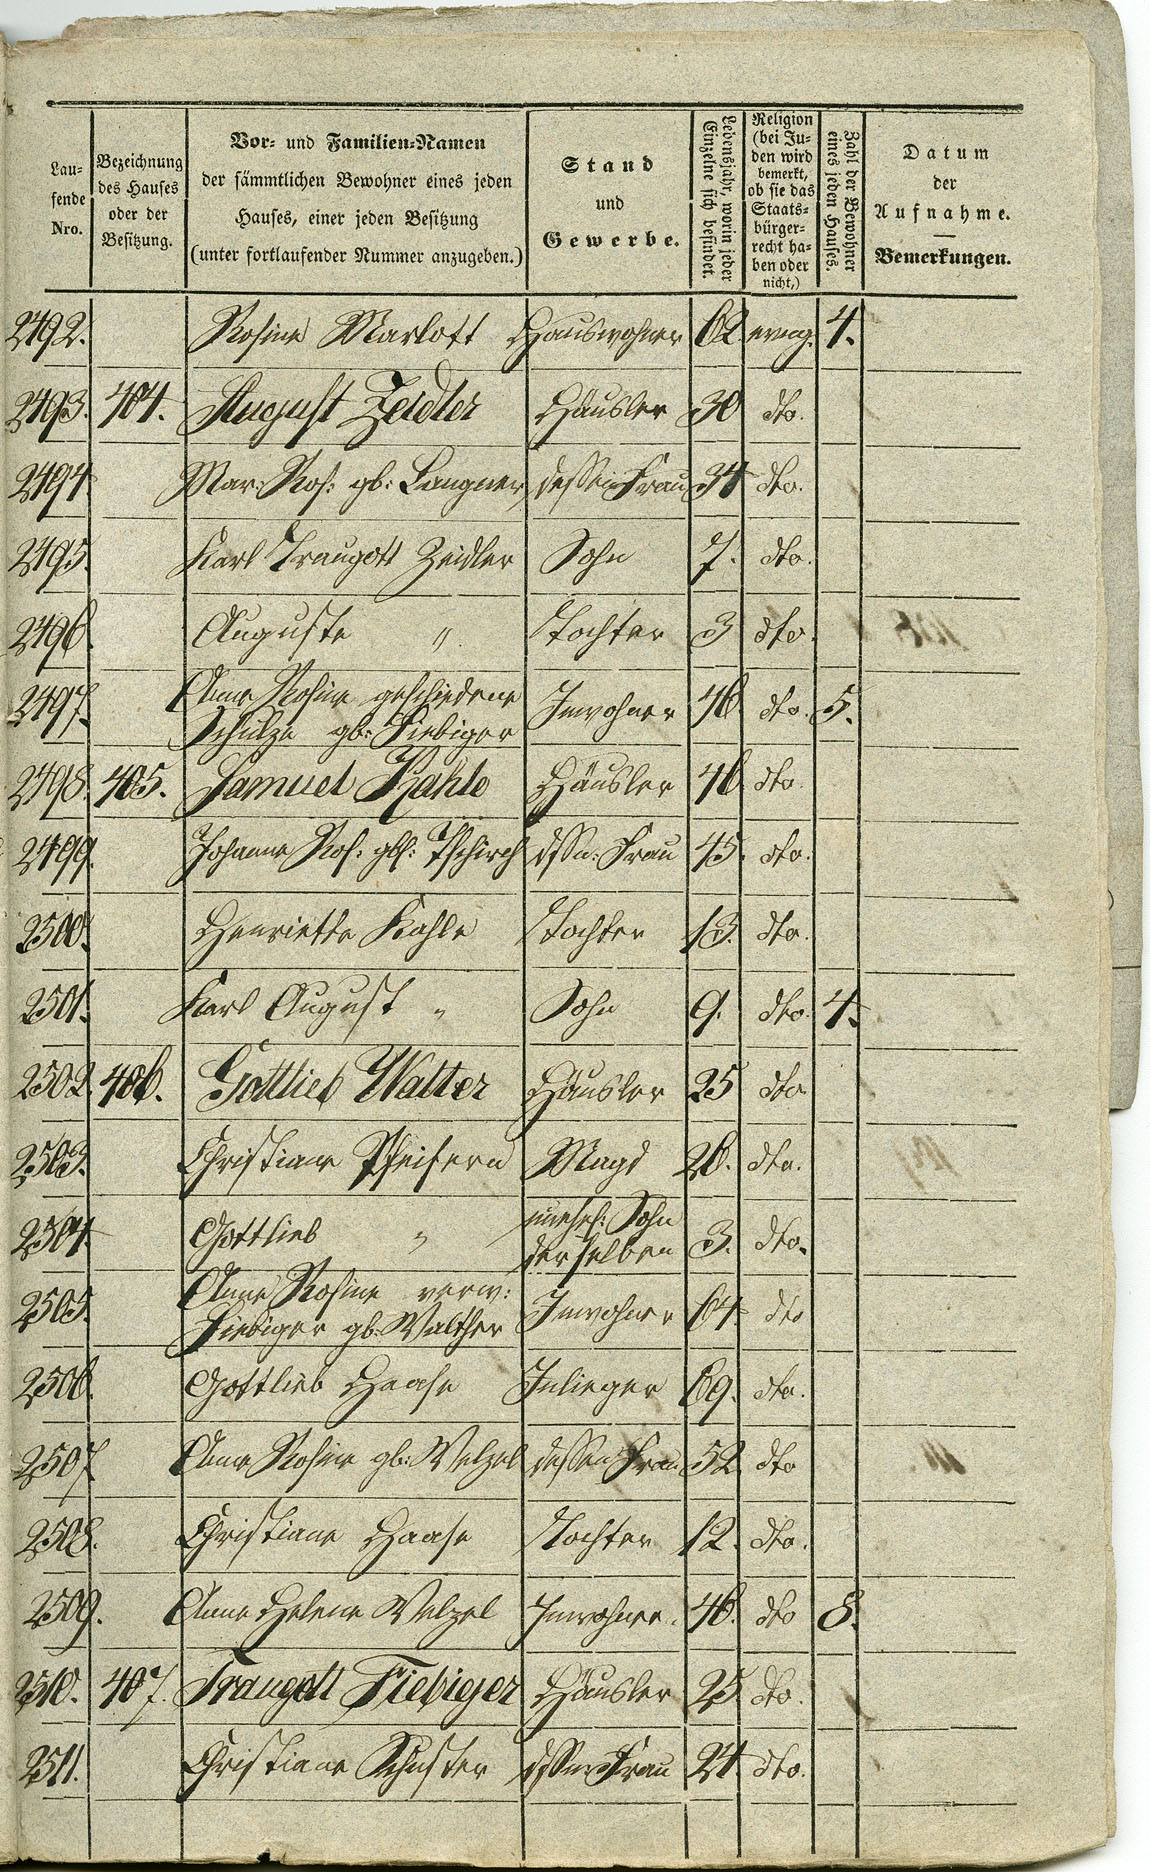 Lau-
fende
Nro.
Bezeichnung
des Hauses
oder der
Besitzung.
Vor- und Familien-Namen
der sämmtlichen Bewohner eines jeden
Hauses, einer jeden Besitzung
(unter fortlaufender Nummer anzugeben.)
Stand
und
Gewerbe.
Lebensjahr, worin jeder
Einzelne sich befindet.
Religion
(bei Ju-
den wird
bemerkt,
ob sie das
Staats-
bürger-
recht ha-
ben oder
nicht,)
Zahl der Bewohner
eines jeden Hauses.
Datum
der
Aufnahme.
Bemerkungen.
2492. Rosine Marlott Hauswohner 62. evang. 4.
2493. 404. August Zeidler Häusler 30 dto.
2494. Mar: Ros: gb: Langner dessen Frau 34 dto.
2495. Karl Traugott Zeidler Sohn 7. dto.
2496. Auguste " Tochter 3 dto.
2497. Anna Rosina geschiedene
Schulze gb: Fiebiger Inwohner 46 dto. 5.
2498. 405. Samuel Kahle Häusler 46 dto.
2499. Johanna Ros: gb: Tschirch dssn: Frau 45. dto.
2500. Henriette Kahle Tochter 13. dto.
2501. Karl August " Sohn 9. dto. 4.
2502. 406. Gottlieb Walter Häusler 25 dto
2503. Christiane Pfeifern Magd 26. dto.
2504. Gottlieb " unehel: Sohn
derselben 3. dto.
2505. Anna Rosina verw:
Fiebiger gb: Walther Inwohner 64 dto
2506. Gottlieb Haase Inlieger 69. dto.
2507 Anna Rosine gb: Welzel dessen Frau 52 dto
2508. Christiane Haase Tochter 12. dto.
2509. Anna Helene Welzel Inwohner. 46. dto 8.
2510. 407. Traugott Fiebiger Häusler 25 dto.
2511. Christiane Schuster dssen Frau 24. dto.